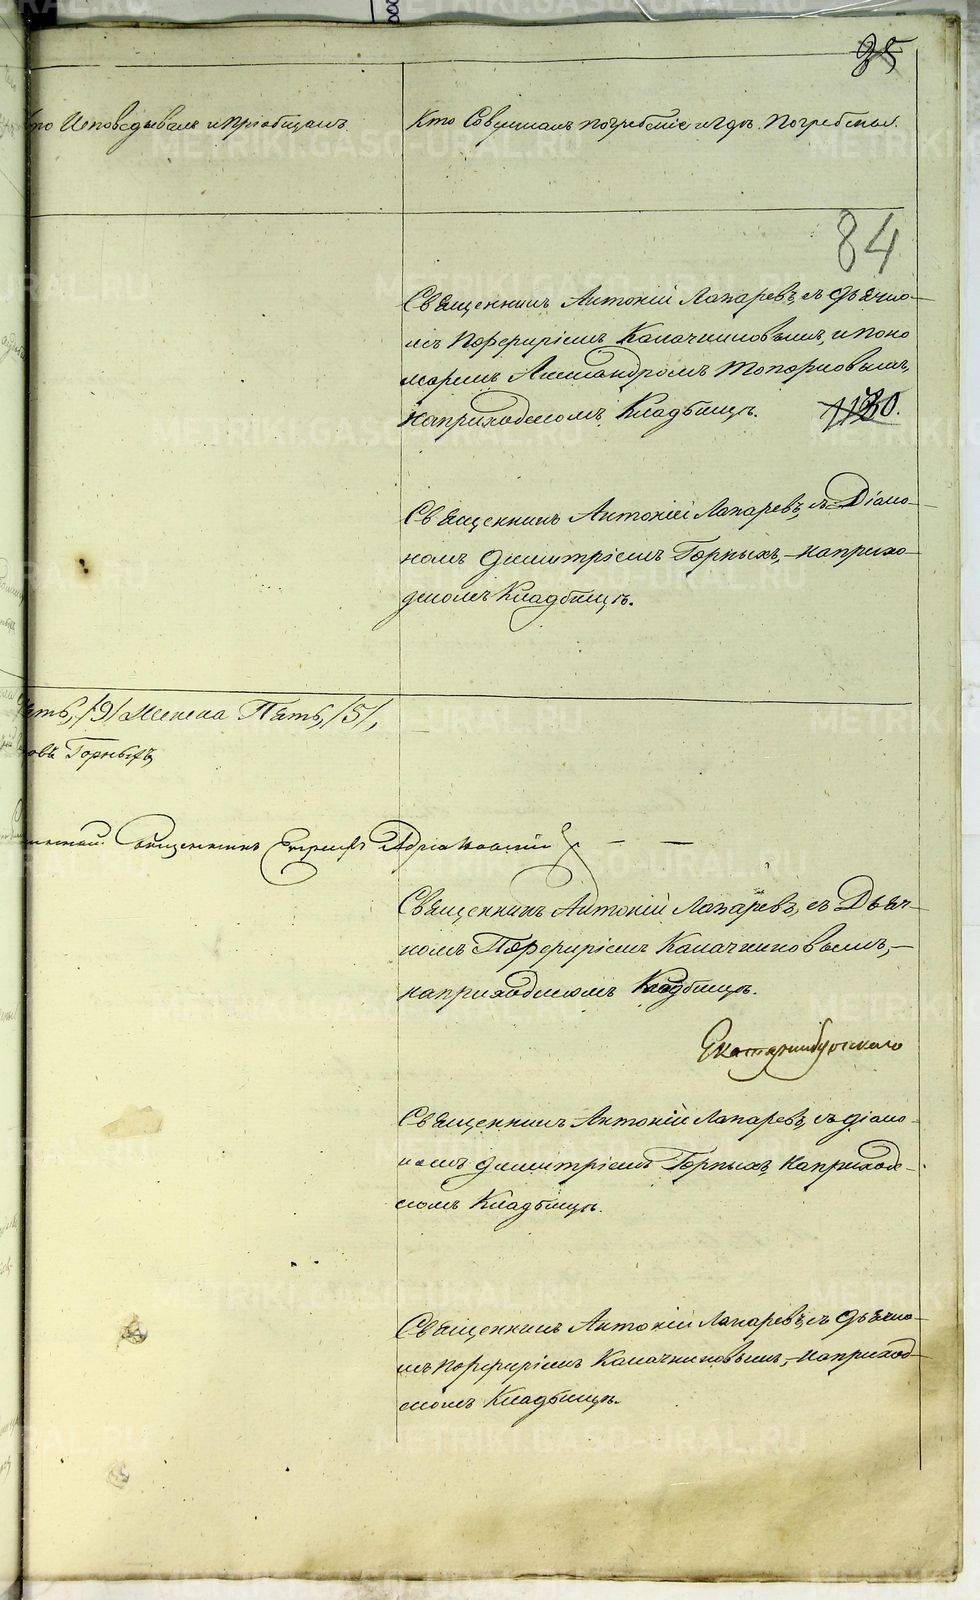 35
Кто Исповѣдывалъ и Пріобщалъ.
Кто Совершалъ погребеніе и Гдѣ Погребены.
84
Священникъ Антоній Лапаревъ, съ дьячко-
мъ Порфиріемъ Калачниковымъ, и поно
маремъ Александромъ Топорковымъ,
на приходскомъ Кладбищѣ.
1130.
Священникъ Антоній Лапаревъ, съ Діако-
номъ Димитріемъ Горныхъ, на прихо-
дскомъ Кладбищѣ.
/9/ Женска Пять, /5/,
овъ Горныхъ
Священникъ Адріановскій
Священникъ Антоній Лапаревъ, съ Дьяч-
комъ Порфиріемъ Калачниковымъ,
на приходскомъ Кладбищѣ.
Екатеринбургскаго
Священникъ Антоній Лапаревъ, съ діако-
номъ Димитріемъ Горныхъ, на приход-
скомъ Кладбищѣ.
Священникъ Антоній Лапаревъ, съ дьячко-
мъ Порфиріемъ Калачниковымъ, на приход-
скомъ Кладбищѣ.
METRIKI.GASO-URAL.RU